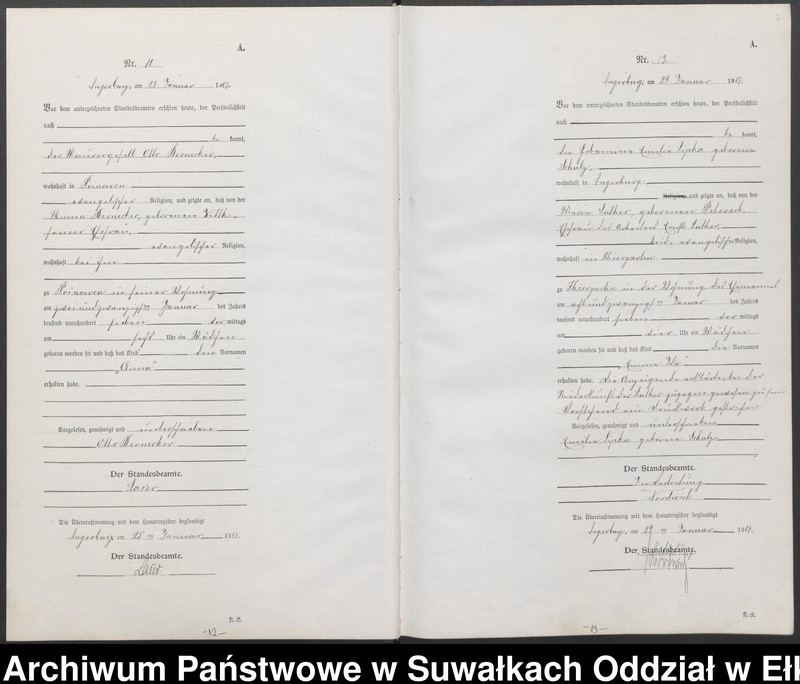 A.
Nr. 11
Angerburg, am 25 Januar 1907.
Vor dem unterzeichneten Standesbeamten erschien heute, der Persönlichkeit
nach
be kannt,
der Maurergesell Otto Bernecker,
wohnhaft in
evangelischer Religion, und zeigte an, daß von der
Bernecker, geborenen
seiner Ehefrau,
evangelischer Religion,
wohnhaft bei ihm
zu in seiner Wohnung
am zweiundzwanzigsten Januar des Jahres
tausend neunhundert sieben mittags
um Uhr ein Mädchen
geboren worden sei und daß das Kind den Vornamen
„Anna“
erhalten habe.
Vorgelesen, genehmigt und unterschrieben
Otto Bernecker
Der Standesbeamte.
Laser
Die Übereinstimmung mit dem Hauptregister beglaubigt
Angerburg, am 25 ten Januar 1907.
Der Standesbeamte.
Laser
-12-
A.
Nr. 12
Angerburg, am 29 Januar 1907.
Vor dem unterzeichneten Standesbeamten erschien heute, der Persönlichkeit
nach
be kannt,
die Hebamme Emilie Lipka geborene
Schulz,
wohnhaft in Angerburg
Religion, und zeigte an, daß von der
Luther, geborenen
Ehefrau des Arbeiters Luther,
beide evangelischer Religion,
wohnhaft in Thiergarten
zu Thiergarten in der Wohnung des Ehemannes
am achtundzwanzigsten Januar des Jahres
tausend neunhundert sieben mittags
um vier Uhr ein Mädchen
geboren worden sei und daß das Kind die Vornamen
„Emma Ida“
erhalten habe. Die Anzeigende erklärte, bei der
Niederkunft der Luther zugegen gewesen zu sein
Vorstehend ein Druckwort gestrichen
Vorgelesen, genehmigt und unterschrieben
Emilie Lipka geborene Schulz
Der Standesbeamte.
In Vertretung
Die Übereinstimmung mit dem Hauptregister beglaubigt
Angerburg, am 29 ten Januar 1907.
Der Standesbeamte.
-13-
Archiwum Państwowe w Suwałkach Oddział w Ełk